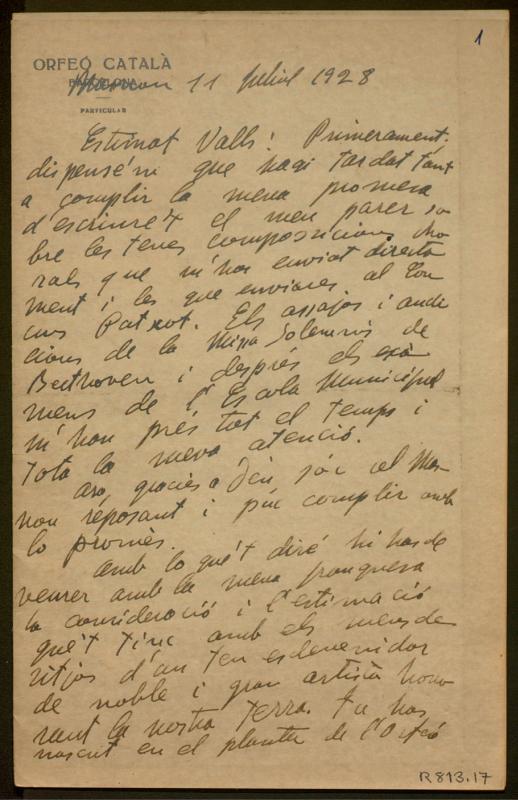 1
ORFEÓ CATALÀ
BARCELONA
PARTICULAR
11 Juliol 1928
Estimat Valls: Primerament
dispensé'm que hagi tardat tant
a complir la meva promesa
d'escriure't el meu parer so-
bre les teves composicions cho-
rals que m'has enviat directa-
ment i les que enviares al Con-
curs Patxot. Els assajos i audi-
cions de la Missa Solemnis de
Beethoven i després els exà-
mens de l'Escola Municipal
m'han près tot el temps i
tota la meva atenció.
Ara, gracies a Deu sóc al Mon-
nou reposant i puc complir amb
lo promès.
Amb lo que't diré hi has de
veurer amb la meva franquesa
la consideració i l'estimació
que't tinc amb els meus de-
sitjos d'un teu esdevenidor
de noble i gran artista hono-
rant la nostra terra. Tu has
nascut en el planter de l'Orfeó
R 813.17